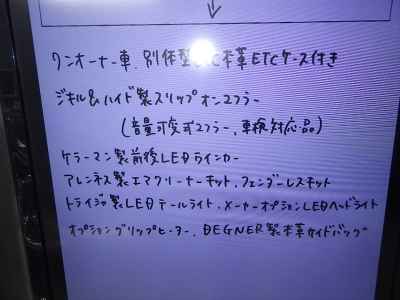 ワンオーナー車、別体型ETC本革ETCケース付き
ジキル&ハイド製スリップオンマフラー
(音量可変式マフラー、車検対応品)
ケラーマン製前後LEDウインカー
アレンネス製エアクリーナーキット、フェンダーレスキット
トライジャ製LEDテールライト、メーカーオプションLEDヘッドライト
オプショングリップヒーター、DEGNER製本革サイドバッグ